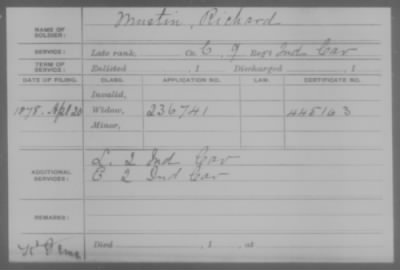 NAME OF SOLDIER: Mustin, Richard
SERVICE: Late rank, Co. C, 9 Reg't Ind Cav
TERM OF SERVICE: Enlisted , 1 Discharged , 1
DATE OF FILING. CLASS. APPLICATION NO. LAW. CERTIFICATE NO.
Invalid,
1878, Apl 20 Widow, 236741 445163
Minor,
ADDITIONAL SERVICES: L. 2 Ind Cav
C 2 Ind Cav
REMARKS:
Died , 1 , at